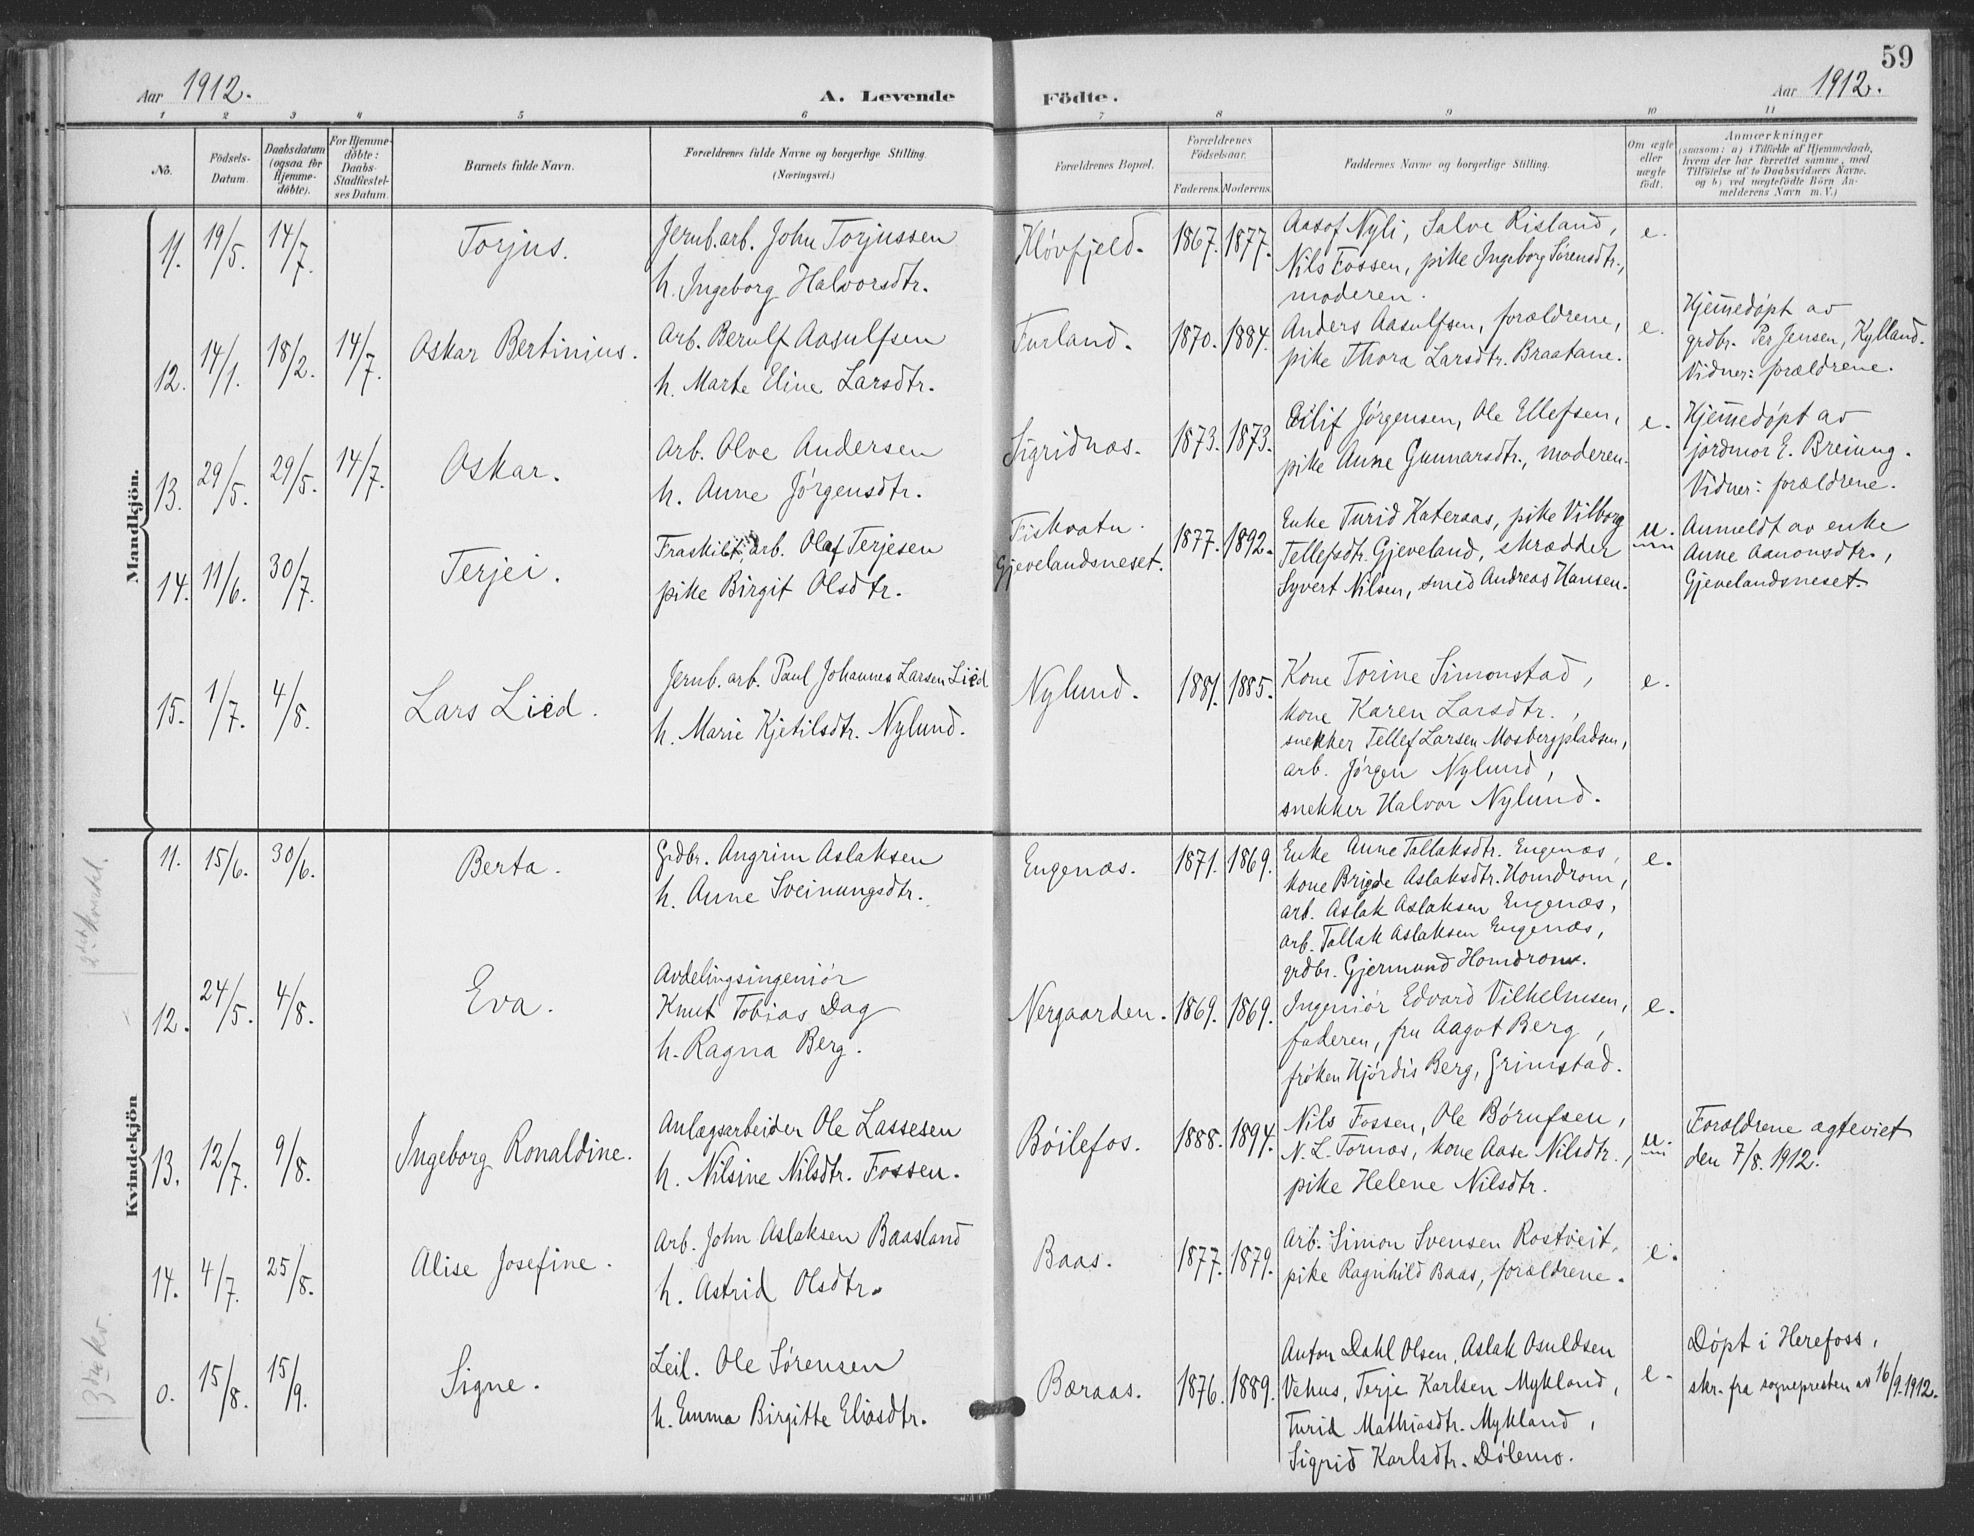 59
Aar 1912.
A. Levende Födte.
Aar 1912.
1 2 3 4 5 6 7 8 9 10 11
No.
Födsels-Datum.
Daabsdatum (ogsaa for Hjemmedöbte).
For Hjemmedöbte: Daabs-Stadfæstelses Datum.
Barnets fulde Navn.
Forældrenes fulde Navne og borgerlige Stilling. (Næringsvei.)
Forældrenes Bopæl.
Forældrenes Födselsaar.
Faderens. Moderens.
Faddernes Navne og borgerlige Stilling.
Om ægte eller uægte födt.
Anmærkninger
(saasom: a) i Tilfælde af Hjemmedaab,
hvem der har forrettet samme, med
Tilföielse af to Daabsvidners Navne,
og b) ved uægtefödte Börn An-
melderens Navn m. V.)
Mandkjön.
11. 19/5. 14/7. Torjus.
Jernb.arb. John Torjussen
h. Ingeborg Halvorsdtr.
Kløvfjeld. 1867. 1877.
Aasof Nyli, Salve Risland,
Nils Fossen, pike Ingeborg Sørensdtr.,
moderen.
e.
12. 14/1. 18/2. 14/7. Oskar Bertinius.
Arb. Berulf Aasulfsen
h. Marte Eline Larsdtr.
Furland. 1870. 1884.
Anders Aasulfsen, forældrene,
pike Thora Larsdtr. Braatane.
e.
Hjemmedøpt av
grdbr. Per Jensen, Kylland.
Vidner: forældrene.
13. 29/5. 29/5. 14/7. Oskar.
Arb. Olve Andersen
h. Anne Jørgensdtr.
Sigridnæs. 1873. 1873.
Eilif Jørgensen, Ole Ellefsen,
pike Anne Gunnarsdtr., moderen.
e.
Hjemmedøpt av
jordmor E. Breiung.
Vidner: forældrene.
14. 11/6. 30/7. Terjei.
Fraskilt arb. Olaf Terjesen
pike Birgit Olsdtr.
Fiskvatn
Gjevelandsneset. 1877. 1892.
Enke Turid Kateraas, pike Vilborg
Tellefsdtr. Gjeveland, skrædder
Syvert Nilsen, smed Andreas Hansen.
u.
Anmeldt av enke
Anne Aanonsdtr.,
Gjevelandsneset.
15. 1/7. 4/8. Lars Lied.
Jernb. arb. Paul Johannes Larsen Lied
h. Marie Kjetilsdtr. Nylund.
Nylund. 1881. 1885.
Kone Torine Simonstad,
kone Karen Larsdtr.,
snekker Tellef Larsen Mosbergpladsen,
arb. Jørgen Nylund,
snekker Halvor Nylund.
e.
Kvindekjön
2det kvartal.
11. 15/6. 30/6. Berta.
Grdbr. Angrim Aslaksen
h. Anne Sveinungsdtr.
Engenæs. 1871. 1869.
Enke Anne Tallaksdtr. Engenæs,
kone Brigde Aslaksdtr. Homdrom,
arb. Aslak Aslaksen Engenæs,
arb. Tallak Aslaksen Engenæs,
grdbr. Gjermund Homdrom.
e.
12. 24/5. 4/8. Eva.
Avdelingsingeniør
Knut Tobias Dag
h. Ragna Berg.
Nergaarden. 1869. 1869.
Ingeniør Edvard Vilhelmsen,
faderen, fru Aagot Berg,
frøken Hjørdis Berg, Grimstad.
e.
13. 12/7. 9/8. Ingeborg Ronaldine.
Anlægsarbeider Ole Lassesen
h. Nilsine Nilsdtr. Fossen.
Bøilefos. 1888. 1894.
Nils Fossen, Ole Børufsen,
N. L. Tornæs, kone Aase Nilsdtr.,
pike Helene Nilsdtr.
u.
Forældrene egteviet
den 7/8. 1912.
14. 4/7. 25/8. Alise Josefine.
Arb. John Aslaksen Baasland
h. Astrid Olsdtr.
Baas. 1877. 1879.
Arb. Simon Svensen Rostveit,
pike Ragnhild Baas, forældrene.
e.
3die kv.
0. 15/8. 15/9. Signe.
Leil. Ole Sørensen
h. Emma Birgitte Eliasdtr.
Bæraas. 1876. 1889.
Anton Dahl Olsen, Aslak Osuldsen
Vehus, Terje Karlsen Mykland,
Turid Mathiasdtr. Mykland,
Sigrid Karlsdtr. Dølemo.
e.
Døpt i Herefoss,
skr. fra sognepresten av 16/9. 1912.